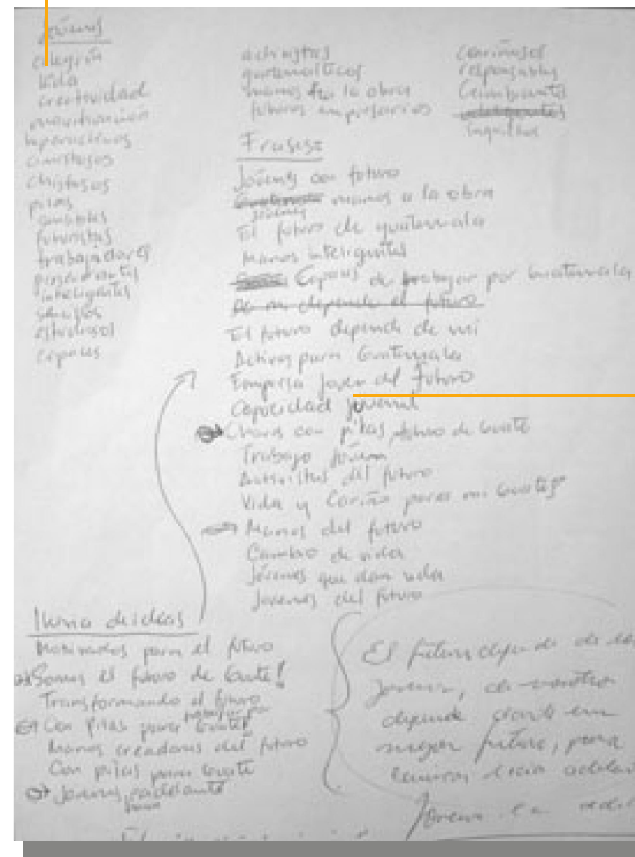 Jóvenes
alegría
Vida
creatividad
motivación
hiperactivos
amistosos
chistosos
pilas
amables
futuristas
trabajadores
inteligentes
estudiosos
capaces
activistas
guatemaltecos
manos a la obra
futuros empresarios
cariñosos
responsables
Frases:
Jóvenes con futuro
jóvenes manos a la obra
El futuro de guatemala
Manos inteligentes
Capaces de trabajar por Guatemala
De mi depende el futuro
El futuro depende de mi
Activos para Guatemala
Empresa joven del futuro
Capacidad juvenil
con pilas futuro de Guate
Trabajo joven
Activistas del futuro
Vida y Cariño para mi Guate
Manos del futuro
Cambio de vida
Jóvenes que dan vida
Jovenes del futuro
lluvia de ideas
Motivados para el futuro
Somos el futuro de Guate!
Transformando el futuro
Con Pilas para trabajar por Guate
Manos creadoras del futuro
Con pilas para Guate
Jóvenes adelante
El futuro depende de
jovenes, de nosotros
depende
mejor futuro, para
Joven